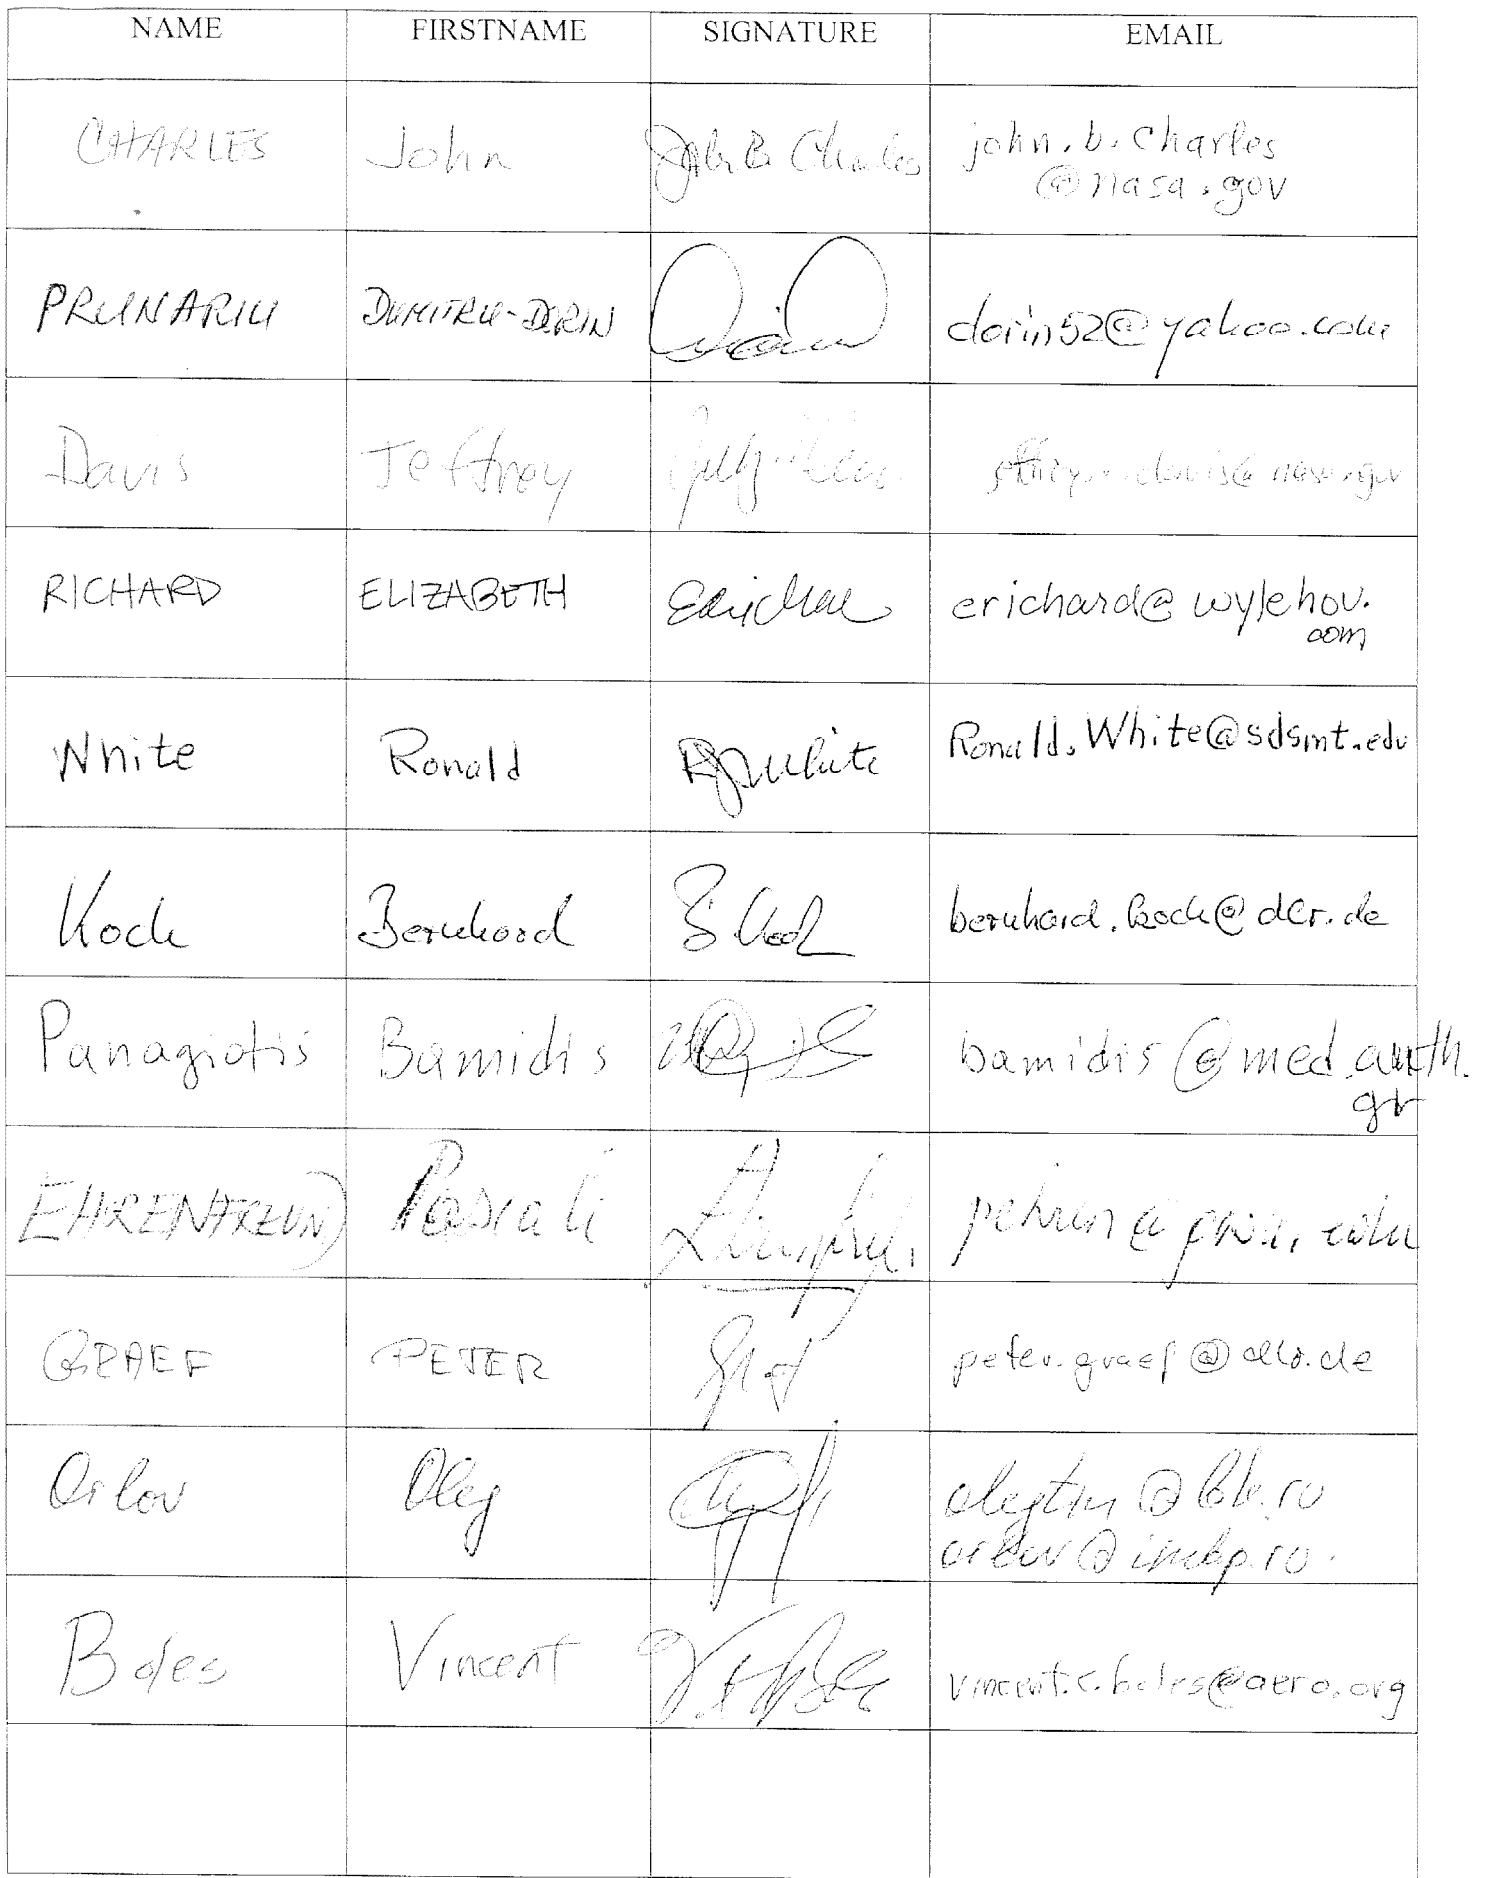 NAME FIRSTNAME SIGNATURE EMAIL
CHARLES John John B. Charles john.b.charles
@nasa.gov
PRUNARIU DUMITRU-DORIN dorin52@yahoo.com
Davis Jeffrey
RICHARD ELIZABETH erichard@wylehou.
com
White Ronald RJWhite Ronald.White@sdsmt.edu
Koch Bernhard B. Koch bernhard.koch@dlr.de
Panagiotis Bamidis bamidis@med.auth.
gr
EHRENFREUND Pascale
GRAEF PETER peter.graef@dlr.de
Orlov Oleg
orlov@imbp.ru
Boles Vincent vincent.c.boles@aero.org